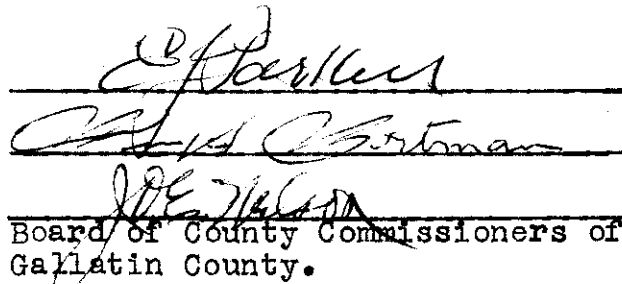 E J Parker
Chas H Chortman
J De Nelson
Board of County Commissioners of
Gallatin County.